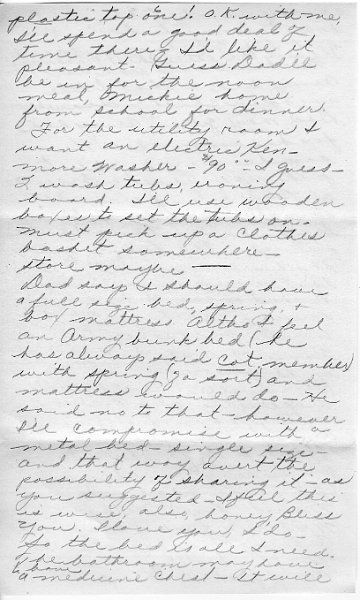 plastic top "one"! O.K. with me,
I'll spend a good deal of
time there, I'd like it
pleasant. Guess Dad'll
be in for the noon
meal, Mickie home
from school for dinner.
For the utility room I
want an electric Ken-
more Washer - "90" - I guess -
2 wash tubs, ironing
board. I'll use wooden
boxes to set the tubs on.
Must pick up a clothes
basket somewhere -
store maybe. —
Dad says I should have
a full size bed, spring, +
box mattress. Altho I feel
an Army bunk bed (he
has always said cot, member)
with spring (of a sort) and
mattress would do - He
said no to that - however
I'll compromise with a
metal bed - single size -
and that way avert the
possibility of sharing it - as
you suggested - I feel this
is wise also, honey, Bless
you. I love you, I do -
So the bed is all I need.
The bathroom may have
a medicine chest - It will